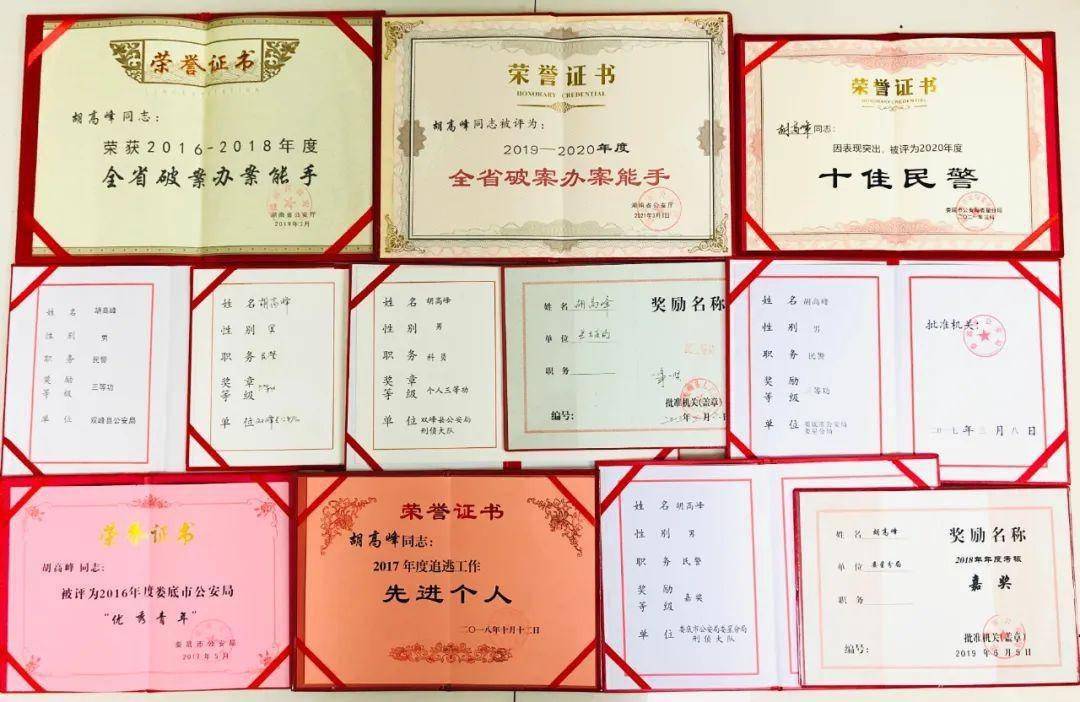 荣誉证书
胡高峰同志：
荣获2016-2018年度
全省破案办案能手
湖南省公安厅
2019年3月
荣誉证书
HONORARY CREDENTIAL
胡高峰同志被评为：
2019—2020年度
全省破案办案能手
湖南省公安厅
2021年3月
荣誉证书
胡高峰同志：
因表现突出，被评为2020年度
十佳民警
娄底市公安局娄星分局
姓名 胡高峰
性别 男
职务 民警
奖励等级 三等功
单位 双峰县公安局
姓名 胡高峰
性别 男
职务 民警
奖章等级
单位
姓名 胡高峰
性别 男
职务 科员
奖章等级 个人三等功
单位 双峰县公安局
刑侦大队
姓名 胡高峰
奖励名称
单位
职务
批准机关(盖章)
编号：
姓名 胡高峰
性别 男
职务 民警
奖励等级 三等功
单位 娄底市公安局
娄星分局
批准机关：
二〇一七年三月八日
荣誉证书
胡高峰同志：
被评为2016年度娄底市公安局
“优秀青年”
娄底市公安局
2017年5月
荣誉证书
胡高峰同志：
2017年度追逃工作
先进个人
二〇一八年十月十二日
姓名 胡高峰
性别 男
职务 民警
奖励等级 嘉奖
单位 娄底市公安局娄星分局
刑侦大队
姓名 胡高峰
奖励名称
2018年年度考核
单位 娄星分局
嘉奖
职务
批准机关(盖章)
编号：
2019年5月5日